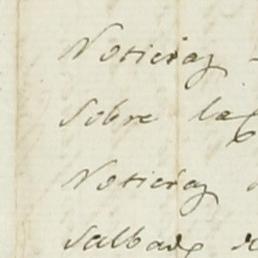 Noticias
Sobre las
Noticias
Salbad